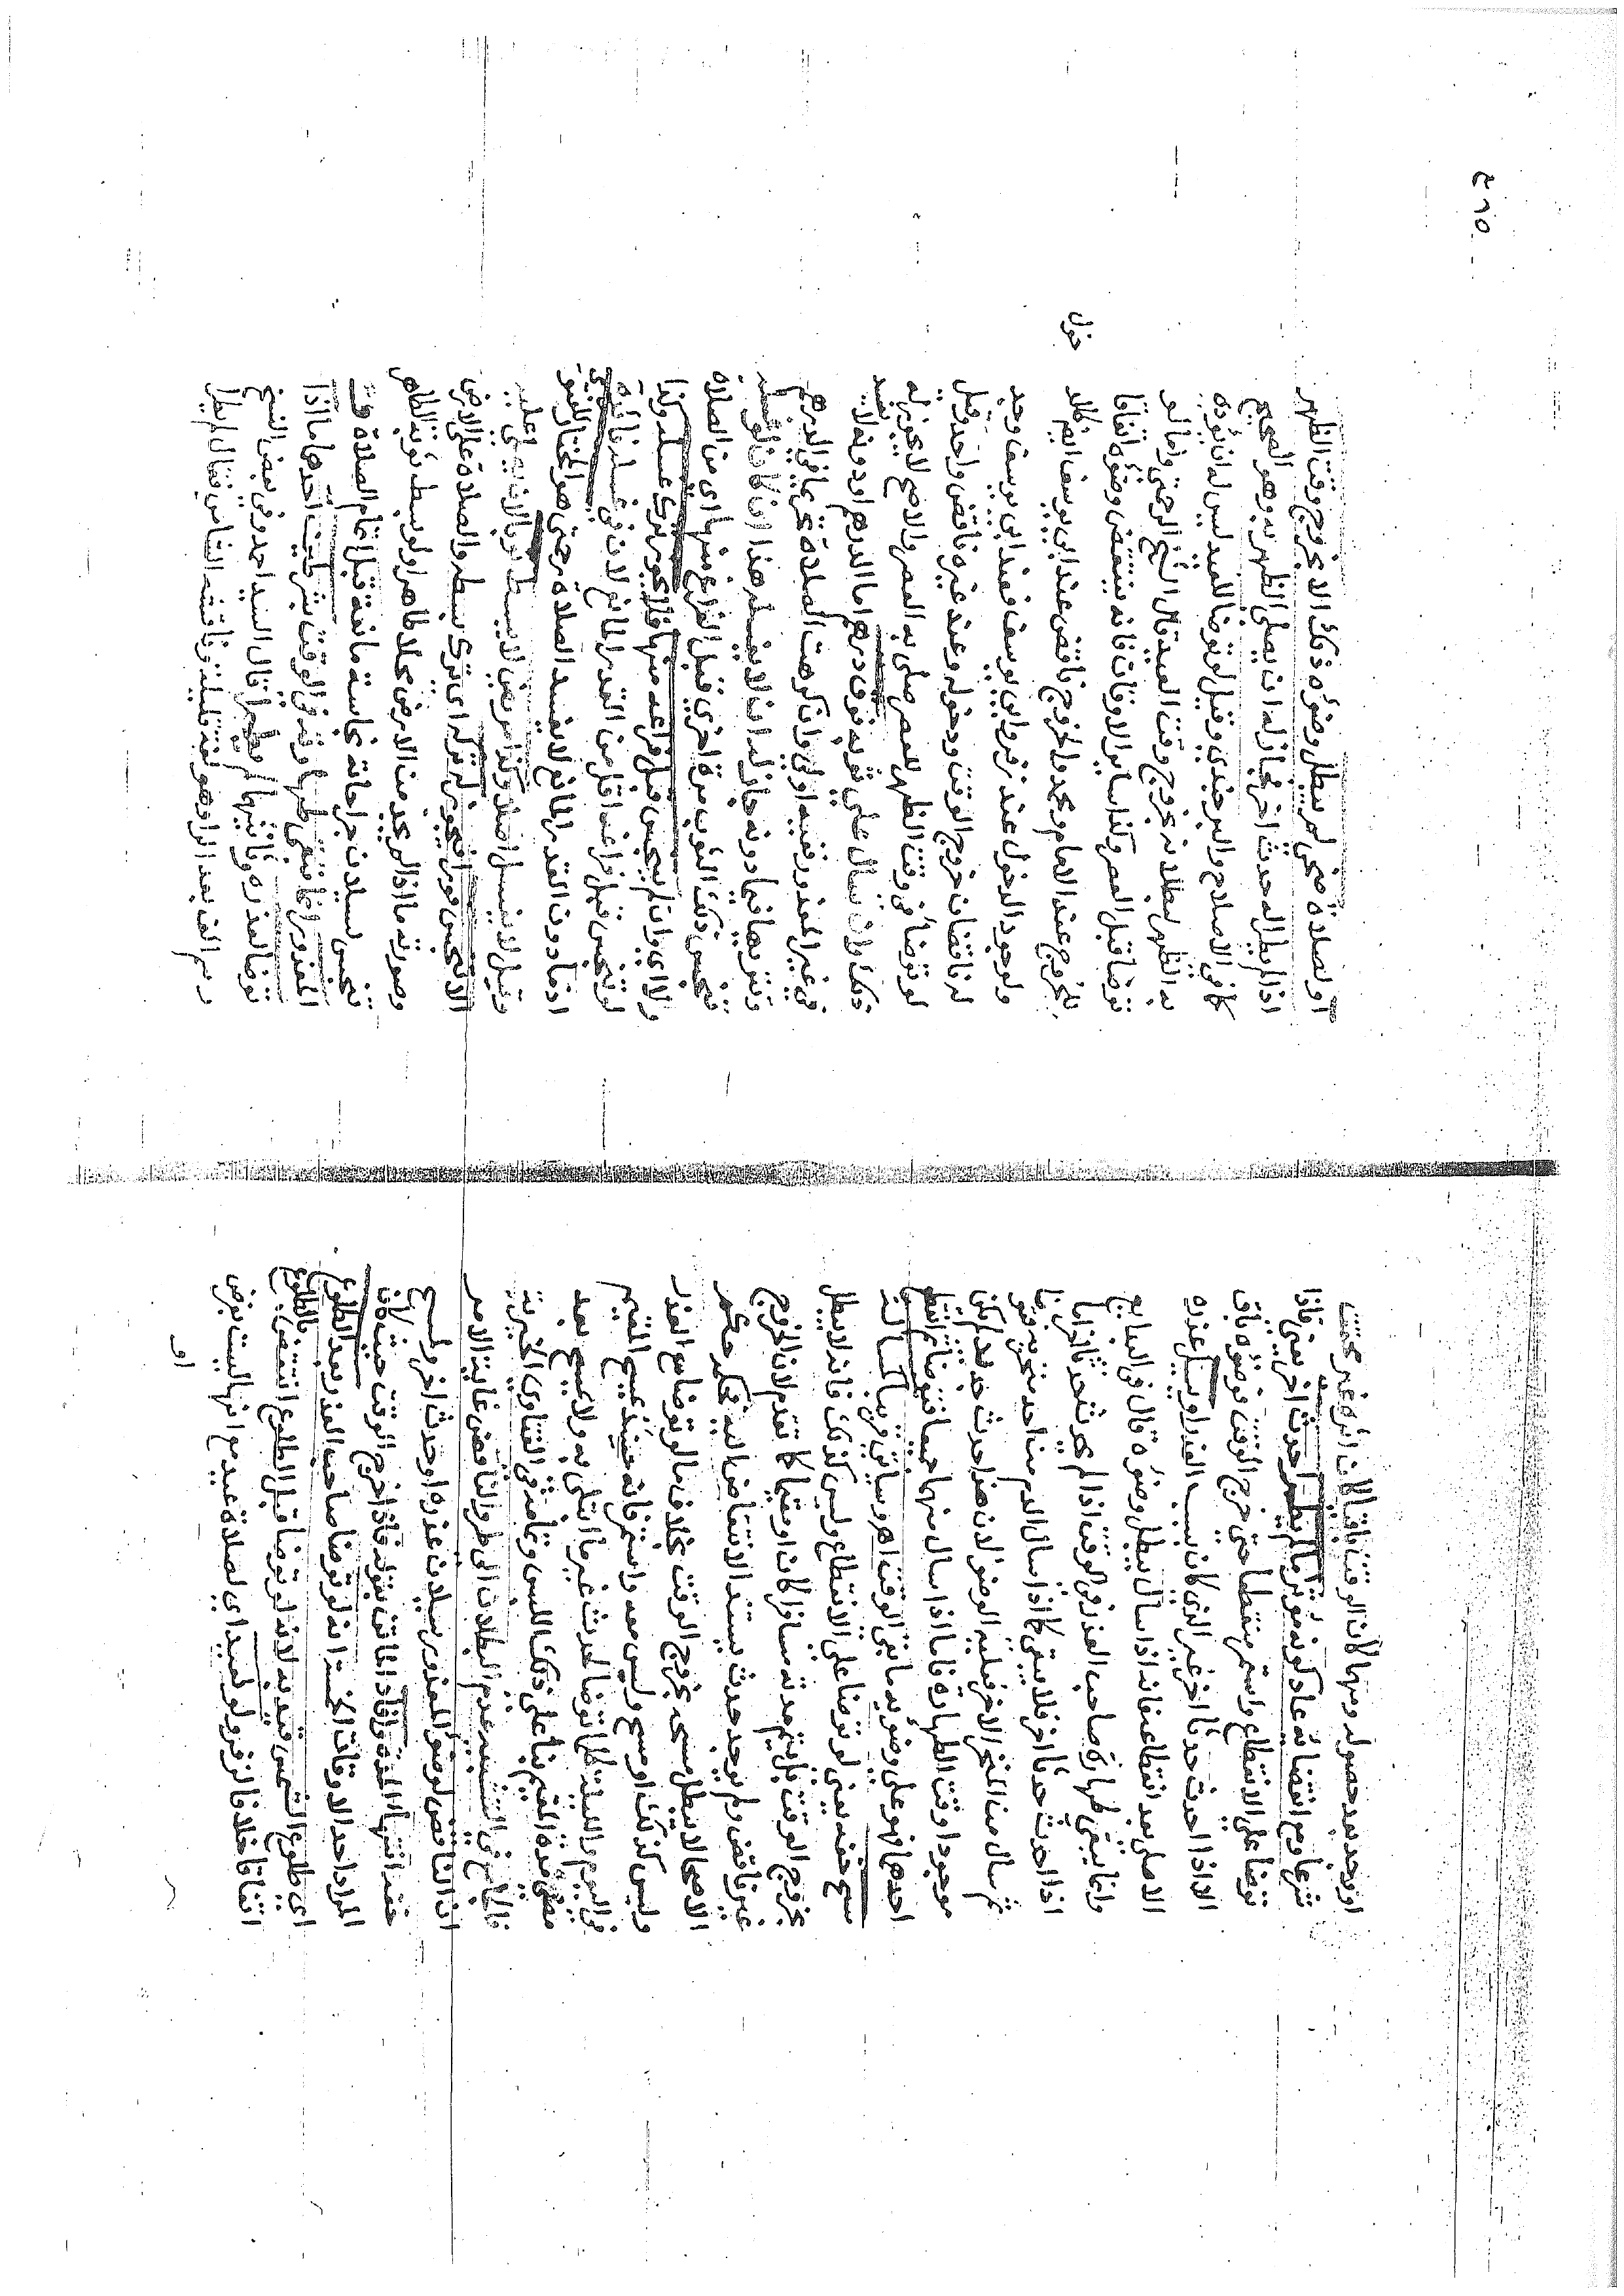 او وجد بعد حصوله ومنها لأن الوقت باقيا لان اثره غير
شرعا ومع انقضائه عاد كونه مؤثرا ما لم يطرأ حدث اخر يعني فاذا
توضأ على الانقطاع واستمر منقطعا حتى خرج الوقت فوضوؤه باق
الا اذا احدث حدثا اخر غير الذي كان بسبب العذر او يسيل عذره
الاصلي بعد انقطاعه فانه اذا سال يبطل وضوءه قال في البدايع
وانما يبقى طهارة صاحب العذر في الوقت اذا لم يحدث حدثا اخر اما
اذا احدث حدثا اخر فلا يبقى كما اذا سال الدم من احد منخريه فتوضأ
ثم سال من المنخر الاخر فعليه الوضوء لان هذا حدث جديد لم يكن
موجودا وقت الطهارة فاما اذا سال منهما جميعا فتوضأ ثم انقطع
احدهما فهو على وضوئه ما بقي الوقت اهـ وسياتي قريبا كما انه
مسح خفه يعني لو توضأ على الانقطاع ولبس كذلك فانه لا يبطل
بخروج الوقت بل يتم مدته مسافرا كان او مقيما كما تقدم لان الخروج
غير ناقض ولم يوجد حدث يستند الانتقاض اليه فكذا حكم
لا يبطل مسحه بخروج الوقت بخلاف ما لو توضأ مع العذر
ولبس كذلك او مسح ولبس معه واستمر فانه حينئذ يمسح المقيم
في اليوم والليلة كلما توضأ لحدث غير ما ابتلي به ولا يمسح بعد
مضي مدة المقيم بناء على ذلك اللبس وتمامه في الفتاوى الخيرية
فالجامع في التشبيه عدم البطلان الى طرو الناقض غاية الامر
ان الناقض لوضوء المعذور سيلان عذره او حدث اخر ولمسح
عند انتهاء المدة وافاد الماتن بقوله فاذا خرج الوقت حيث كان
المراد احد الاوقات الخمسة انه لو توضأ صاحب العذر بعد الطلوع
اي طلوع الشمس قيد به لانه لو توضأ قبل الطلوع انتقض بالطلوع
اتفاقا خلافا لزفر ولو لعيد اي لصلاة عيد مع انها ليست بفرض
او
٢٦٥
او لصلاة ضحى لم يبطل وضوءه ذلك الا بخروج وقت الظهر
اذا لم يطرأ له حدث اخر فجاز له ان يصلي الظهر به وهو الصحيح
كما في الاصلاح والبرجندي وقيل لو توضأ للعيد ليس له ان يؤدي
به الظهر لبطلانه بخروج وقت العيد قال الشيخ الرحمتي واما لو
توضأ قبل العصر وكذا ساير الاوقات فانه ينتقض وضوءه اتفاقا
للخروج عند الامام ومحمد والخروج ناقض عند ابي يوسف ايضا كالا
دخول
ولوجود الدخول عند زفر وابي يوسف فعند ابي يوسف وجد
له ناقضان خروج الوقت ودخوله وعند غيره ناقض واحد وقيل
لو توضأ في وقت الظهر للعصر صلى به العصر والاصح لا يجوز له
ذلك وان سال على ثوبه فوق درهم اما الدرهم او دونه فلا يفسد
في غير المعذور ففيه اولى وان كرهت الصلاة تحريما في الدرهم
وتنزيها فيما دونه جاز له ان لا يغسله هذا ان كان لو غسله
تنجس ذلك الثوب مرة اخرى قبل الفراغ منها اي من الصلاة
والا اي وان لم يتنجس قبل فراغه منها فلا يجوز ترك غسله ولذا
لو تنجس قبل فراغه اقل من القدر المانع لان في غسله فائدة
اذ ما دون القدر المانع لا يفسد الصلاة رحمتي هو المختار للفتوى
وقيل لا يغسل اصلا وكذا مريض لا يبسط ثوبا الا تنجس عليه
الا تنجس فورا فيجوز له تركه اي ترك بسطه والصلاة على الارض
وصورته ما اذا لم يجد من الارض محلا طاهرا ولو بسط ثوبه الطاهر
تنجس بسيلان جراحاته نجاسة مانعة قبل اتمام الصلاة فت
المعذور انما تبقى طهارته في الوقت بشرطين احدهما ما اذا
توضأ لعذره وثانيهما لم يطرأ قال السيد احمد وفي بعض النسخ
رسم الف بعد الراء وهو لغة قليلة وناقشه الشامي فقال لم يطرأ